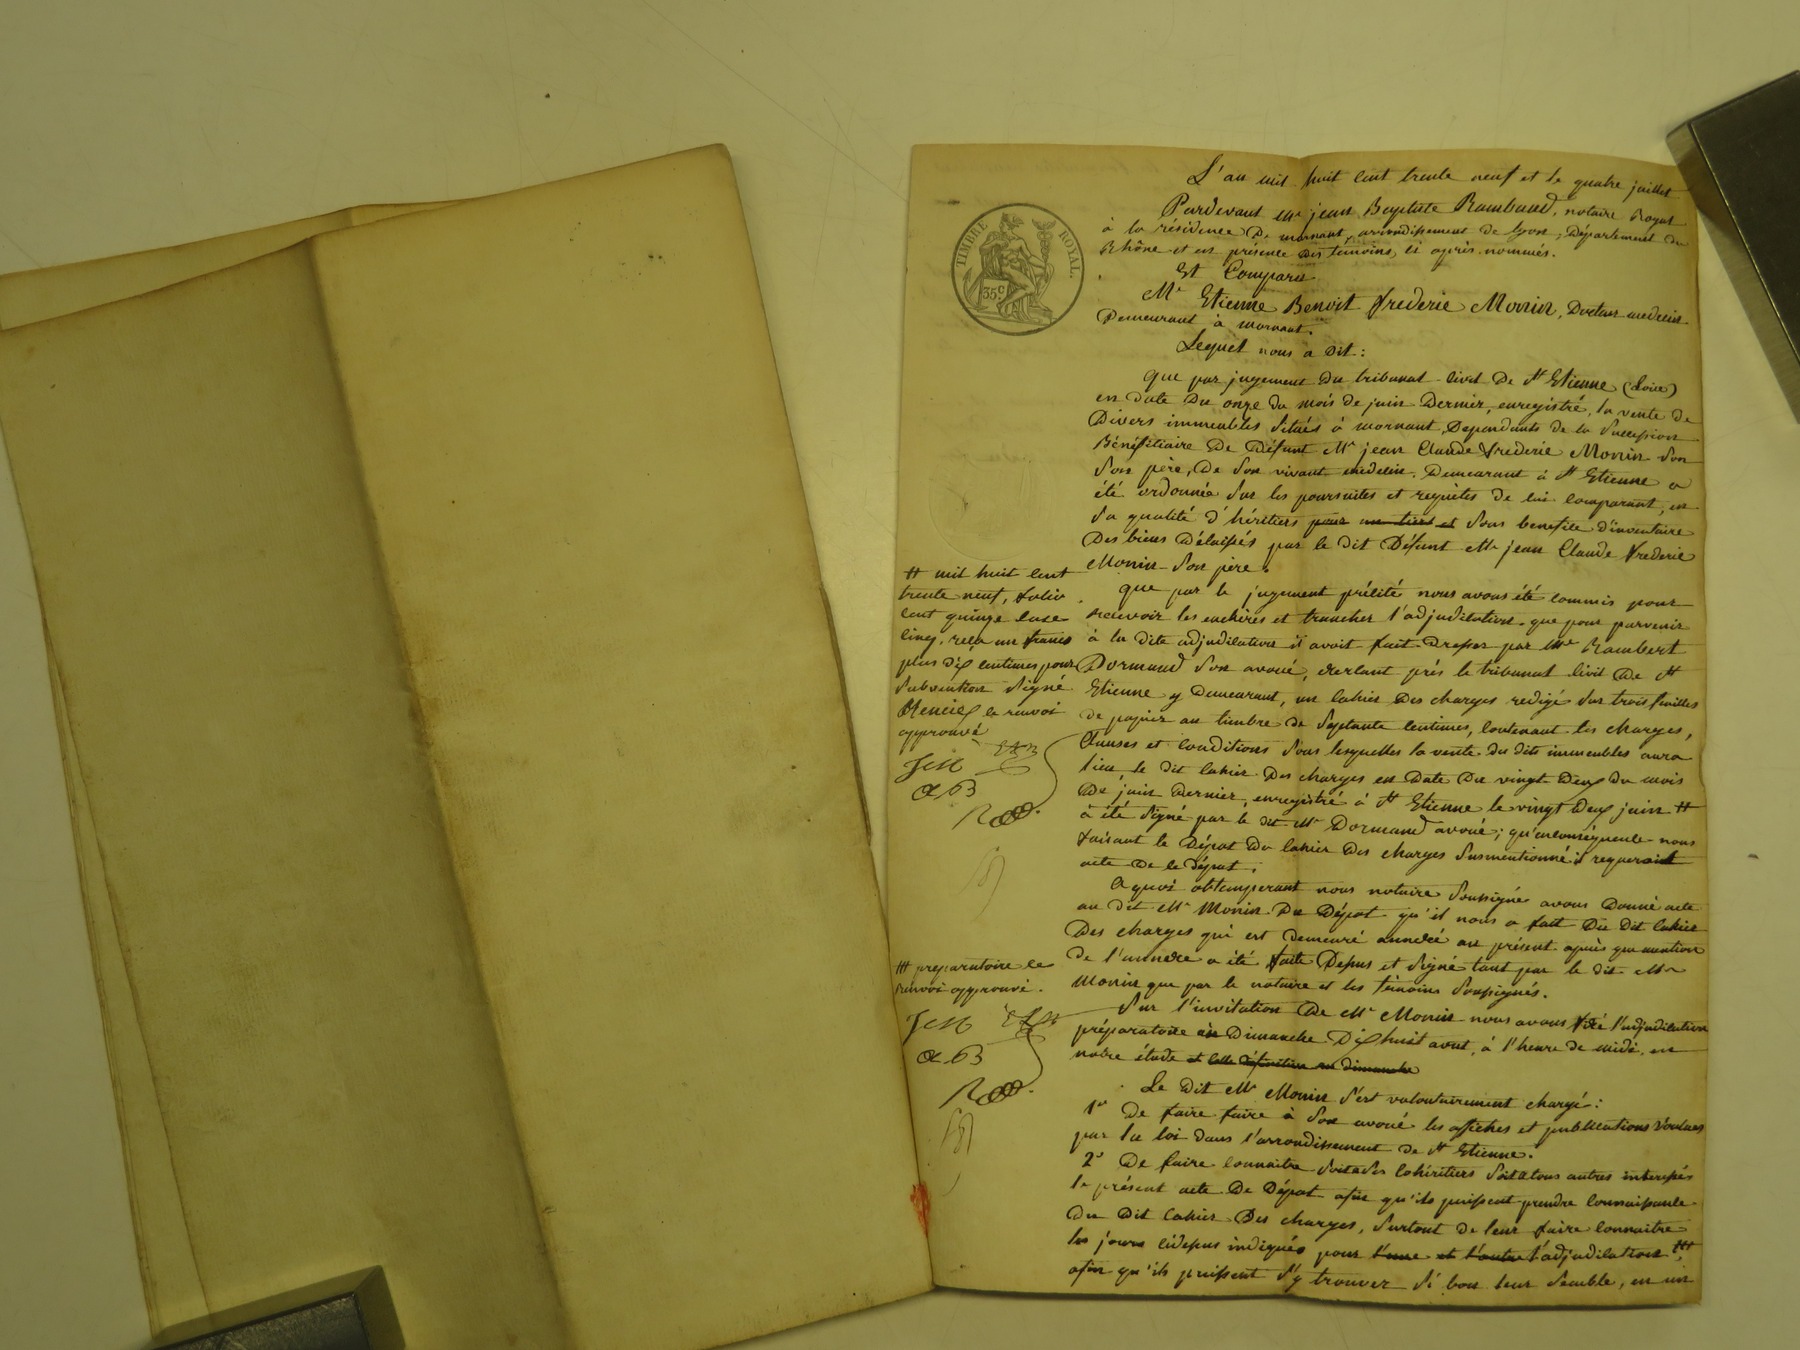 TIMBRE ROYAL.
35c
L'an mil huit cent trente neuf et le quatre juillet
Pardevant me jean Baptiste Rambaud, notaire Royal
à la résidence De mornant, arrondissement de lyon, Département du
Rhône et en présence des témoins, ci après nommés.
Est Comparu
Mr Etienne Benoit frederic Monin, Docteur medecin
Demeurant à mornant.
Lequel nous a dit :
que par jugement du tribunal civil De St Etienne (Loire)
en date Du onze du mois de juin Dernier, enregistré, la vente de
Divers immeubles situés à mornant Dependants de la succession
Bénéficiaire De Défunt Mr jean Claude frederic Monin son
son père, De son vivant medecin Demeurant à St Etienne a
été ordonnée sur les poursuites et requêtes de lui comparant, en
sa qualité d'héritiers pour un tiers et sous benefice d'inventaire
Des biens Délaissés par le dit Défunt Mr jean Claude frederic
Monin son père.
que par le jugement précité nous avons été commis pour
recevoir les enchères et trancher l'adjudication. que pour parvenir
à la dite adjudication il avoit fait Dresser par Me Rambert
Dormand son avoué, exerçant près le tribunal civil De St
Etienne y Demeurant, un cahier Des charges redigé sur trois feuilles
de papier au timbre de septante centimes, contenant les charges,
Clauses et conditions sous lesquelles la vente du dits immeubles aura
lieu le dit cahier Des charges en Date Du vingt Deux du mois
De juin Dernier, enregistré à St Etienne le vingt Deux juin #
a été signé par le dit Mr Dormand avoué ; qu'enconséquence nous
faisant le Dépot Du cahier Des charges susmentionné il requerait
acte De ce dépot.
A quoi obtemperant nous notaire soussigné avons Donné acte
au dit Mr Monin Du Dépot qu'il nous a fait Du Dit Cahier
Des charges qui est demeuré annexé au présent après que mention
de l'annexe a été faite Dessus et signé tant par le dit Mr
Monin que par le notaire et les témoins soussignés.
Sur l'invitation De Mr Monin nous avons fixé l'adjudication
préparatoire au Dimanche Dix huit aout, à l'heure de midi, en
notre étude et celle définitive au dimanche
Le dit Mr Monin s'est volontairement chargé :
1° De faire faire à son avoué les affiches et publications voulues
par la loi dans l'arrondissement de St Etienne.
2° De faire connaitre soit à ses cohéritiers soit à tous autres interessés
le présent acte De Dépot afin qu'ils puissent prendre connaissance
du dit Cahier Des charges, surtout de leur faire connaitre
les jours cidessus indiqués pour l'une et l'autre l'adjudication ###
afin qu'ils puissent s'y trouver si bon leur semble, en un
# mil huit cent
trente neuf, folio
cent quinze case
cinq, reçu un francs
plus dix centimes pour
subvention signé
le renvoi
approuvé
### preparatoire le
renvoi approuvé.